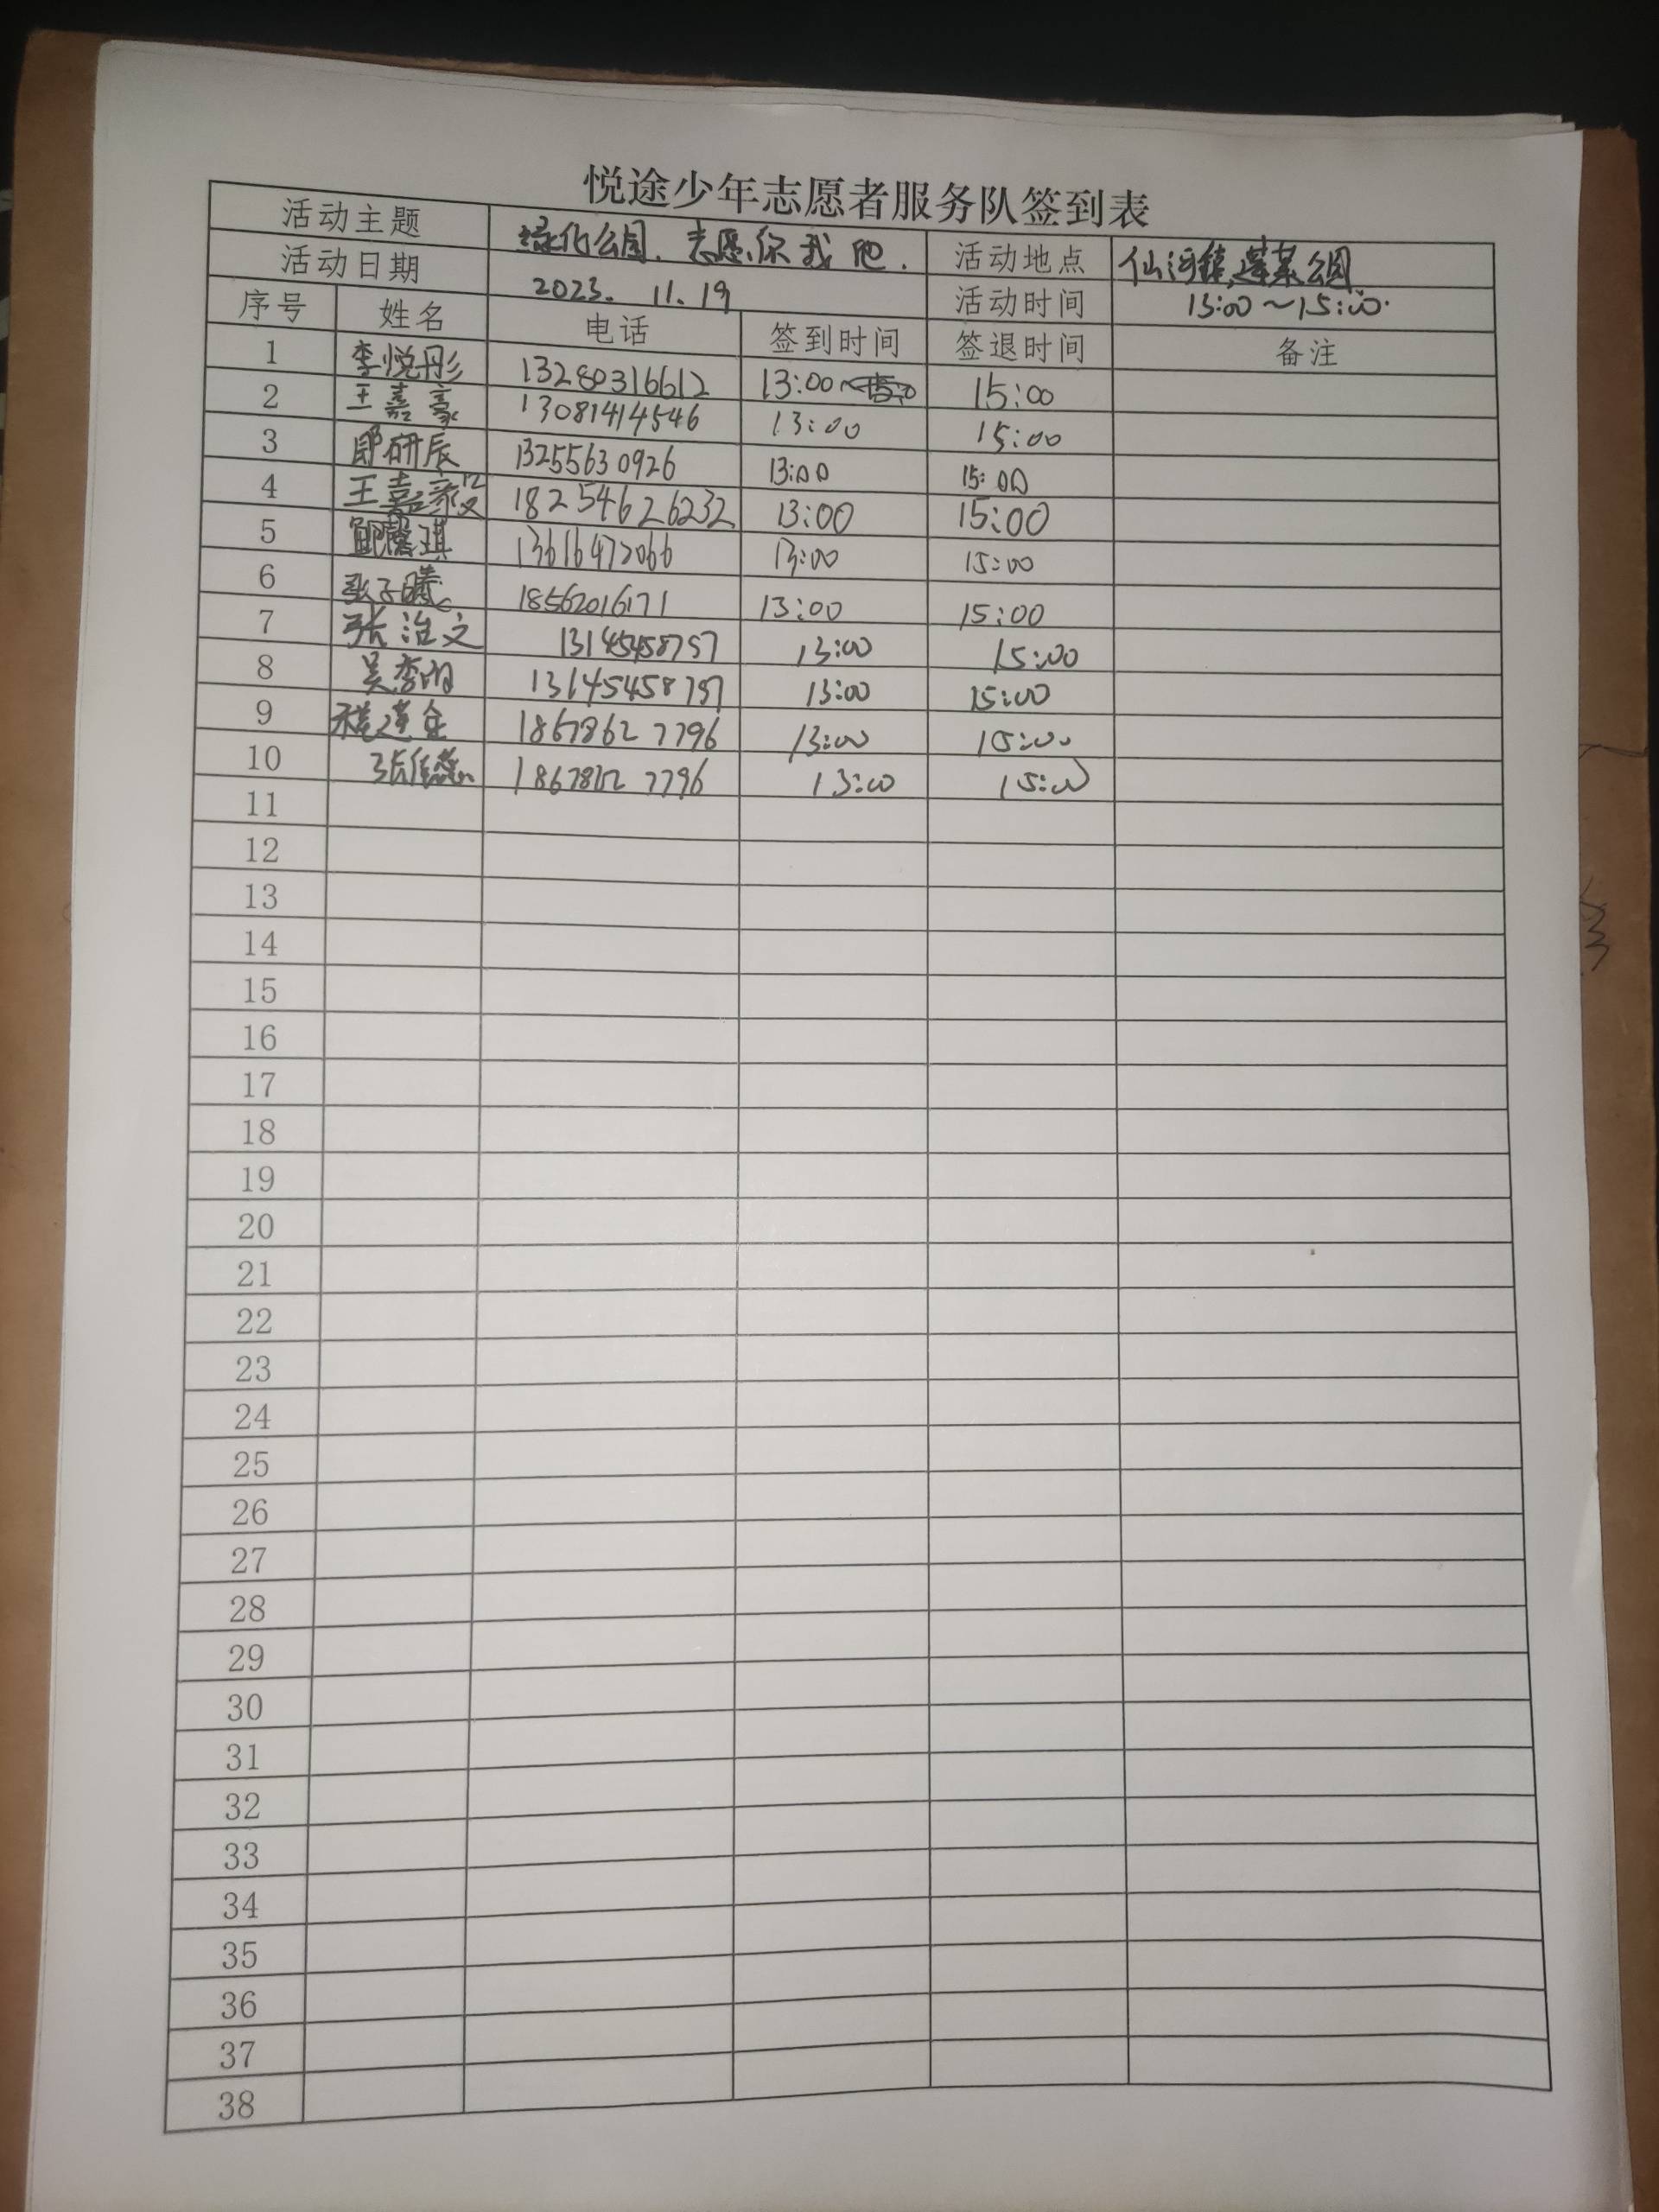 悦途少年志愿者服务队签到表
活动主题 绿化公园.志愿你我他. 活动地点 仙河镇蓬莱公园
活动日期 2023. 11. 19 活动时间 13:00~15:00.
序号 姓名 电话 签到时间 签退时间 备注
1 李悦彤 13280316612 13:00 15:00
2 王嘉豪 13081414546 13:00 15:00
3 研辰 13255630926 13:00 15:00
4 王嘉毅 18254626232 13:00 15:00
5 馨琪 13616472066 13:00 15:00
6 张子曦 18562016171 13:00 15:00
7 张治文 13145458757 13:00 15:00
8 吴李明 13145458757 13:00 15:00
9 1867862 7796 13:00 15:00
10 张 1867862 7796 13:00 15:00
11
12
13
14
15
16
17
18
19
20
21
22
23
24
25
26
27
28
29
30
31
32
33
34
35
36
37
38